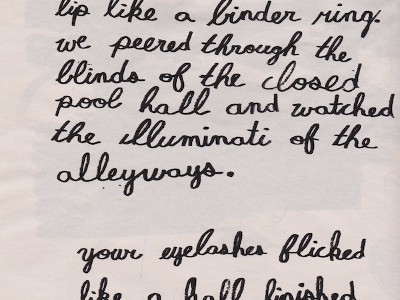 lip like a binder ring.
we peered through the
blinds of the closed
pool hall and watched
the illuminati of the
alleyways.
your eyelashes flicked
like a ball